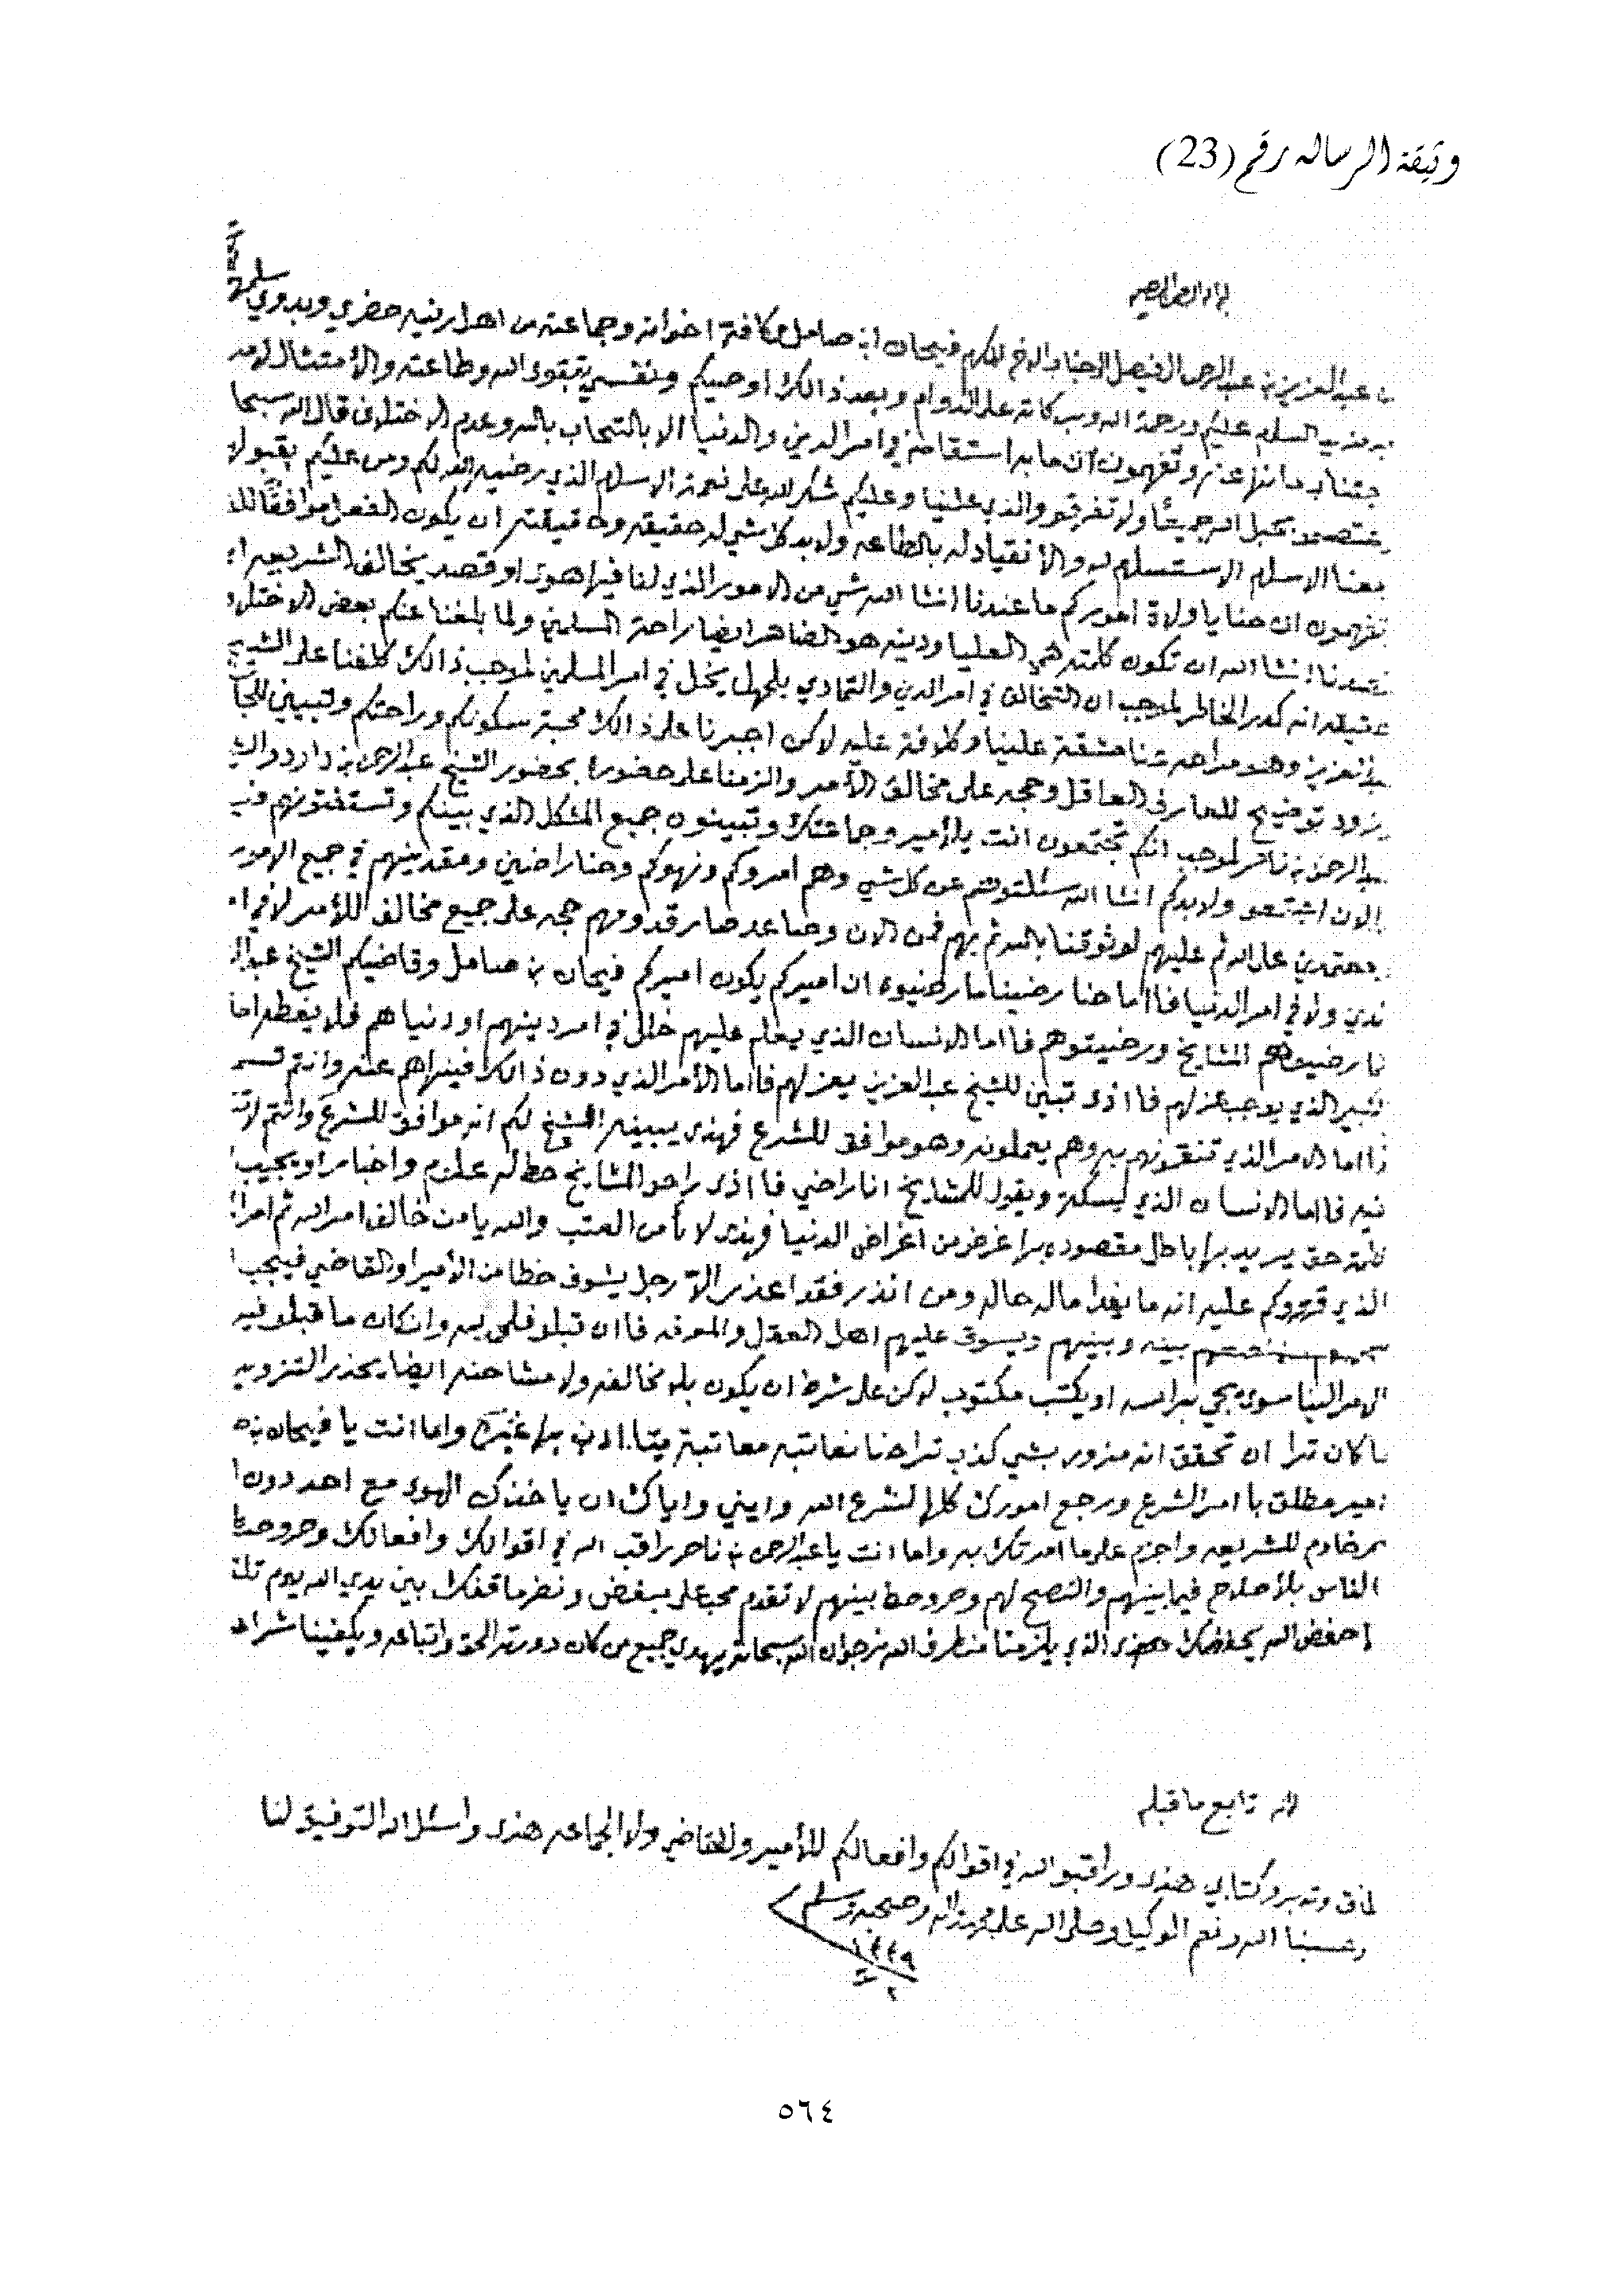 وثيقة الرساله رقم (23)
بسم الله الرحمن الرحيم
من عبدالعزيز بن عبدالرحمن الفيصل الى جناب الاخ المكرم فيحان ابن صامل وكافة اخوانه وجماعته من اهل رنيه حضري وبدوي سلمهم
السلام عليكم ورحمة الله وبركاته على الدوام وبعد ذالك اوصيكم ونفسي بتقوى الله وطاعته والأمتثال لامره
واجتناب ما نها عنه وتفهمون ان ما به استقامة في امر الدين والدنيا الا بالتحاب بالله وعدم الاختلاف قال الله سبحا
واعتصمو بحبل الله جميعًا ولا تفرقو والذي علينا وعليكم شكر الله على نعمة الاسلام الذي رضيه الله لكم ومن عليكم بقبوله
معنا الاسلام الاستسلام له والأنقياد له بالطاعه ولابد كل شي له حقيقه وحقيقته ان يكون الفعل موافقًا
تفهمون ان حنا يا ولاة اموركم ما عندنا انشا الله شي من الامور الذي لنا فيها هوى او قصد يخالف الشريعه
قصدنا انشا الله ان تكون كلمته هي العليا ودينه هو الضاهر ايضا راحة المسلمين ولما بلغنا عنكم بعض الاختلاف
حقيقه انه كدر الخاطر لموجب ان التخالف في امر الدين والتمادي بالجهل يخل في امر المسلمين لموجب ذالك كلفنا على الشيخ
عبدالعزيز وهو مراحه عنا مشقة علينا وكلافة عليه لاكن اجبرنا على ذالك محبة سكونكم وراحتكم وتبييني للجا
يزود توضيح للعارف العاقل وحجه على مخالف الأمر والزمنا على حضوره بحضور الشيخ عبدالرحمن بن داود والشيخ
عبدالرحمن بن ناصر لموجب انكم تجتمعون انت يالأمير وجماعتك وتبينون جميع المشكل الذي بينكم وتستفتونهم فيه
الان اجتمعو ولابدكم انشا الله سئلتوهم عن كل شي وهم امروكم ونهوكم وحنا راضين ومقدينهم في جميع الامور
ومعتمدين على الله ثم عليهم لوثوقنا بالله ثم بهم فمن الان وصاعد صار قدومهم حجه على جميع مخالف للأمر لا في ا
لدين ولا في امر الدنيا فااما حنا رضينا ما رضيوه ان اميركم يكون اميركم فيحان بن صامل وقاضيكم الشيخ
رضيوهم المشايخ ورضيتوهم فااما الانسان الذي يعلم عليهم خلل في امر دينهم او دنياهم فلا يغطه اما
الكبير الذي يوجب عزلهم فااذى تبين للشيخ عبدالعزيز يعزلهم فااما الأمر الذي دون ذالك فينهاهم عنه وانتم
اما الامر الذي تنقمونهم به وهم يعملونه وهو موافق للشرع فهذى يبينه الشيخ لكم انه موافق للشرع وانتم
فيه فااما الانسان الذي يسكت ويقول للمشايخ انا راضي فااذى راحو المشايخ حط له علوم واخبار او يجيب
كلمة حق يريد بها باطل مقصوده بها غرض من اغراض الدنيا فهذى لا يأمن العتب والله يا من خالف امر الله ثم امر
الذي قروكم عليه انه ما يغدا ماله حاله ومن انذر فقد اعذر الا رجل يشوف خطا من الأمير او القاضي فيجب
بينه وبينهم ويسوق عليهم اهل العقل والمعرفه فاان قبلو فلحمد لله وان كان ما قبلو فيه
الامر الينا سوى يجي براسه او يكتب مكتوب لاكن على شرط ان يكون بلا مخالفه ولا مشاحنه ايضا يحذر التزوير
ما كان ترا ان تحقق انه مزور بشي كذب ترا حنا نعاتبه معاتبة يتاادب بها غيره واما انت يا فيحان
امير مطلق باامر الشرع ورجع امورك كلها لشرع الله وايني واياك ان ياخذك الهوى مع احد دون
خادم للشريعه واجزم على ما امرتك به واما انت يا عبدالرحمن بن ناصر راقب الله في اقوالك وافعالك وحروصط
الناس بلأصلاح فيما بينهم والنصح لهم وحروصط بينهم لا تقدم محب على مبغض ونضر ماقفك بين يدي الله يوم
احفض الله يحفضك هذى الذي يلزمنا من طرف الله نرجوان الله سبحانه يهدي جميع من كان دورته الحق واتباعه ويكفينا شر
تابع ما قبله
وتدبرو كتابي هذى وراقبو الله في اقوالكم وافعالكم للأمير وللقاضي ولا الجماعه هذى واسئل الله التوفيق لنا
وحسبنا الله ونعم الوكيل وصلى الله على محمد واله وصحبه وسلم
١٣٣٩
٥٦٤